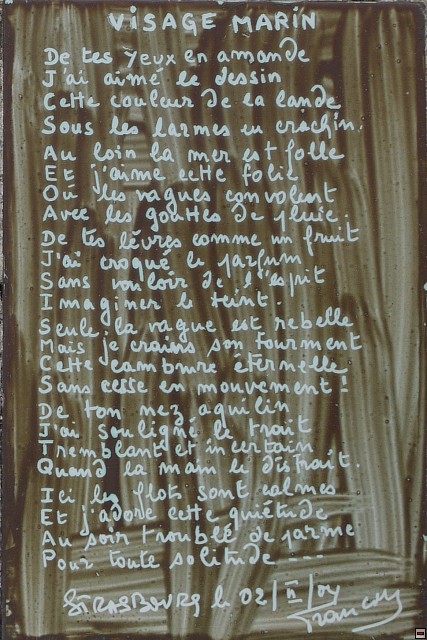 VISAGE MARIN
De tes yeux en amande
J'ai aimé le dessin
Cette couleur de la lande
Sous les larmes en crachin.
Au loin la mer est folle
Et j'aime cette folie
Où les vagues convolent
Avec les gouttes de pluie.
De tes lèvres comme un fruit
J'ai croqué le parfum
Sans vouloir de l'esprit
Imaginer le teint.
Seule la vague est rebelle
Mais je crains son tourment
Cette cambrure éternelle
Sans cesse en mouvement !
De ton nez aquilin
J'ai souligné le trait
Tremblant et incertain
Quand la main le distrait.
Ici les flots sont calmes
Et j'adore cette quiétude
Au soir troublé de parme
Pour toute solitude ---
STRASBOURG le 02/II/04